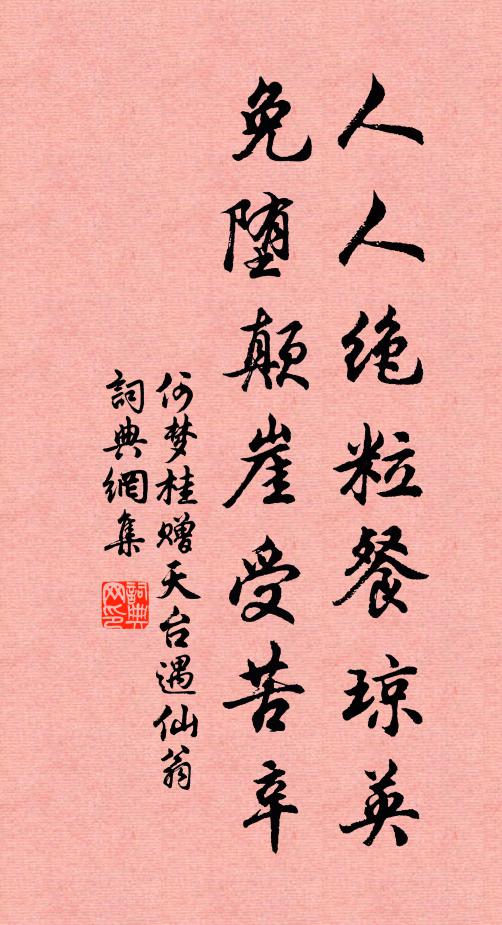 人人绝粒餐琼英
免堕颠崖受苦辛
何梦桂赠天台遇仙翁
詞典網集
詞典网印